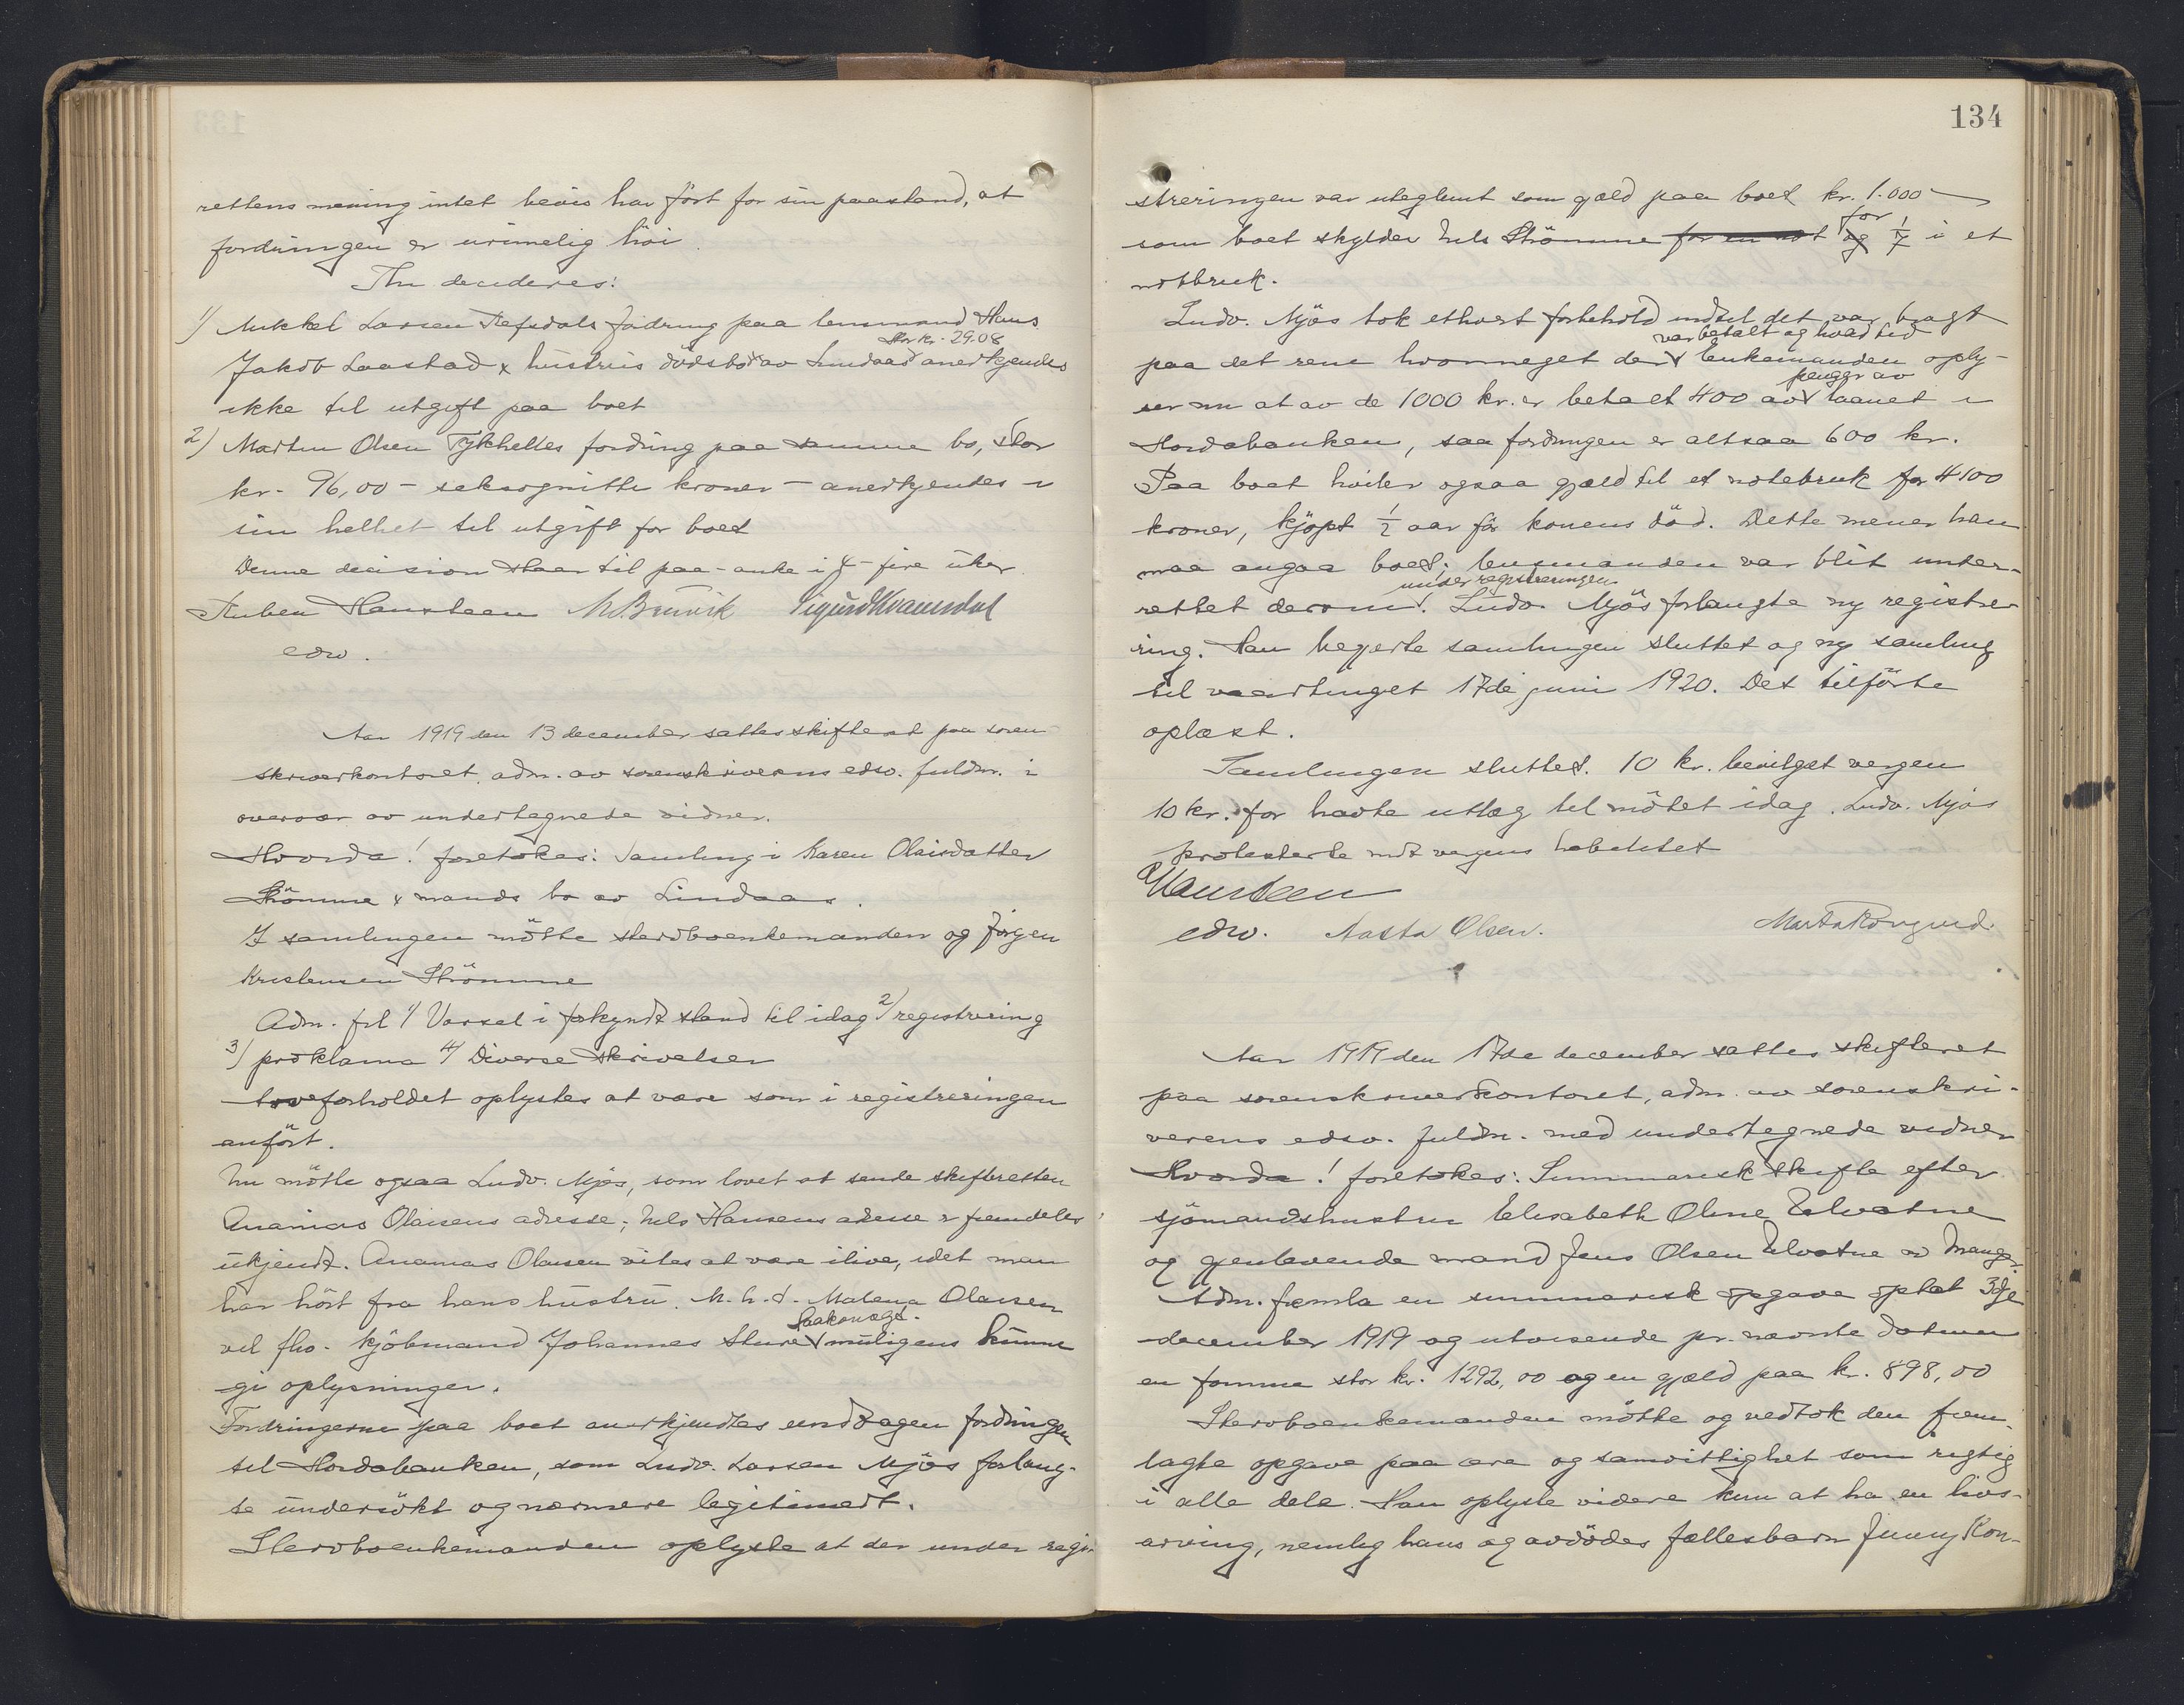 rettens mening intet bevis har ført for sin paastand, at
fordringen er urimelig høi.
Thi decideres:
1) Mikkel Larsen Refsdals fordring paa lensmand Hans
stor kr. 29.08
Jakob Laastad & hustrus dødsbo av Lindaas anerkjendes
ikke til utgift paa boet
2) Martin Olsen Tykheltes fordring paa samme bo, stor
kr. 96,00 - seksognitti kroner - anerkjendes i
sin helhet til utgift for boet
Denne decision staar til paa-anke i 4 - fire uker.
Ruben Hansteen M. Brunvik Sigurd Kvamsdal
edsv.
Aar 1919 den 13 december sattes skifteret paa soren-
skriverkontoret, adm. av sorenskriverens edsv. fuldm. i
overvær av undertegnede vidner.
Hvorda! foretokes: Samling i Karen Olaisdatter
Strømme & mands bo av Lindaas.
I samlingen møtte stervboenkemanden og Jørgen
Kristensen Strømme
Adm. frl 1/ Varsel i forkyndt stand til idag 2/ registrering
3) proklama 4/ Diverse skrivelser
Arveforholdet oplystes at være som i registreringen
anført.
Nu møtte ogsaa Ludv. Mjøs, som lovet at sende skifteretten
Ananias Olaisens adresse; Nels Hansens adresse er fremdeles
ukjendt. Ananias Olaisen vites at være ilive, idet man
har hørt fra hans hustru. M. h. t. Malena Olaisen
vil fho. kjøbmand Johannes Sture muligens kunne
gi oplysninger.
Fordringerne paa boet anerkjendtes undtagen fordringen
til Hordabanken, som Ludv. Larsen Mjøs forlang-
te undersøkt og nærmere legitimert.
Stervboenkemanden oplyste at der under regi-
134
streringen var uteglemt som gjæld paa boet kr. 1.000 -
for
som boet skylder Nels Strømme for en not og 1/7 i et
notbruk.
Ludv. Mjøs tok ethvert forbehold indtil det var bragt
var betalt og hvad tid
paa det rene hvormeget der Enkemanden oply-
penger av
ser nu at av de 1000 kr. er betalt 400 av laanet i
Hordabanken, saa fordringen er altsaa 600 kr.
Paa boet hviler ogsaa gjæld til et notebruk for 4100
kroner, kjøpt 1/2 aar før konens død. Dette mener han
maa angaa boet; lensmanden var blit under-
under registreringen
rettet derom. Ludv. Mjøs forlangte ny registrer-
ring. Han begjærte samlingen sluttet og ny samling
til vaartinget 17de juni 1920. Det tilførte
oplæst.
Samlingen sluttet. 10 kr. bevilget vergen
10 kr. for havte utlæg til møtet idag. Ludv. Mjøs
protesterte mot vergens habilitet
Hansteen
edsv. Aasta Olsen. Marta
Aar 1919 den 17de december sattes skifteret
paa sorenskriverkontoret, adm. av sorenskri-
verens edsv. fuldm. med undertegnede vidner
Hvorda! foretokes: Summarisk skifte efter
sjømandshustru Elisabeth Oline Elvatne
og gjenlevende mand Jens Olsen Elvatne av Manger.
Adm. fremla en summarisk opgave optat 3dje
december 1919 og utvisende pr. nævnte datum
en formue stor kr. 1292,00 og en gjæld paa kr. 898,00
Stervboenkemanden møtte og vedtok den frem-
lagte opgave paa ære og samvittighet som rigtig
i alle dele. Han oplyste videre kun at ha en livs-
arving, nemlig hans og avdødes fællesbarn Jenny Kon-